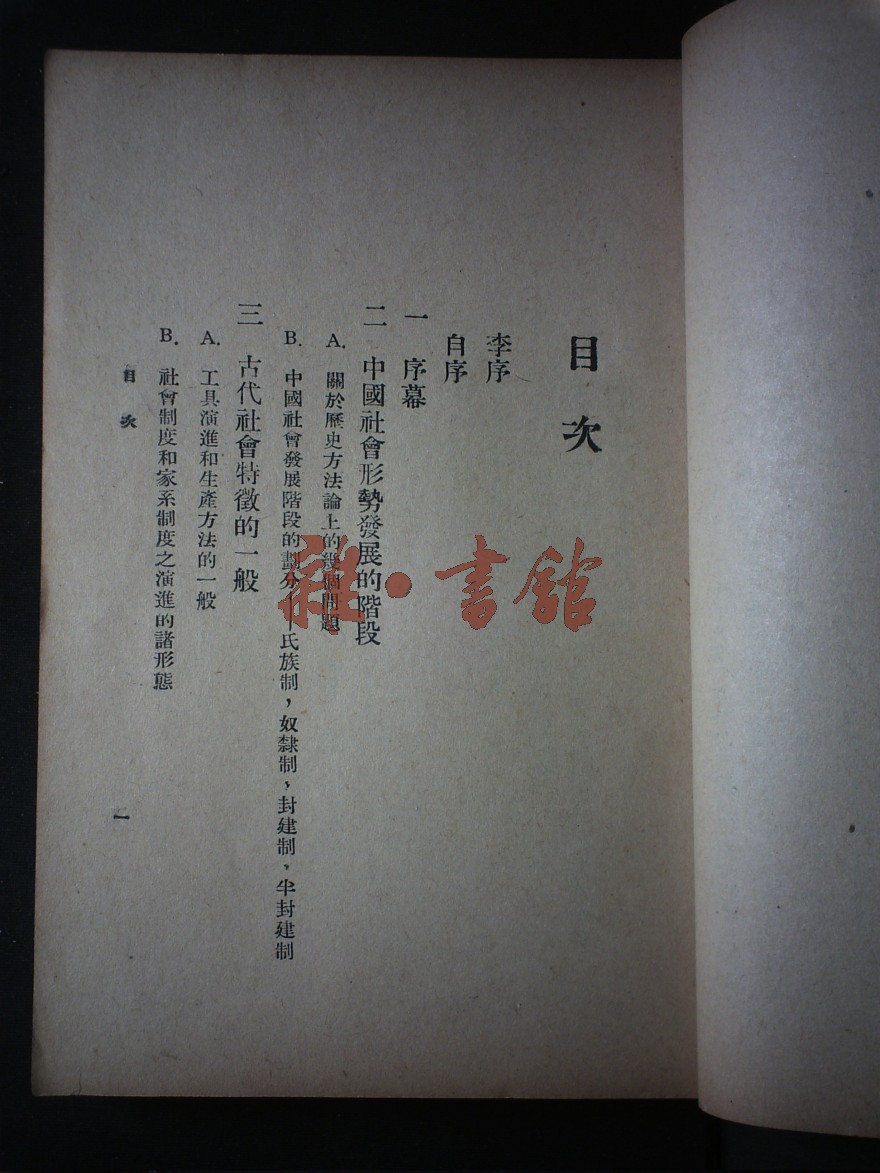 目次
李序
自序
一 序幕
二 中國社會形勢發展的階段
A. 關於歷史方法論上的幾個問題
B. 中國社會發展階段的劃分——氏族制，奴隸制，封建制，半封建制
三 古代社會特徵的一般
A. 工具演進和生產方法的一般
B. 社會制度和家系制度之演進的諸形態
目次
一
雜·書館